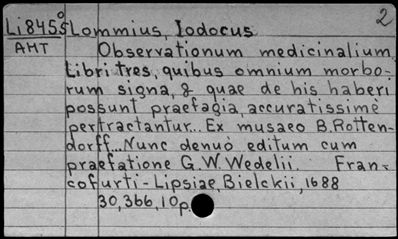 2
Li845o5 Lommius, Iodocus
AMT
Observationum medicinalium
libri tres, quibus omnium morbo-
rum signa, & quae de his haberi
possunt praefagia, accuratissimè
pertractantur... Ex musaeo B. Rotten-
dorff... Nunc denuò editum cum
praefatione G. W. Wedelii. Fran-
cofurti-Lipsiae, Bielckii, 1688
30, 366, 10 p.